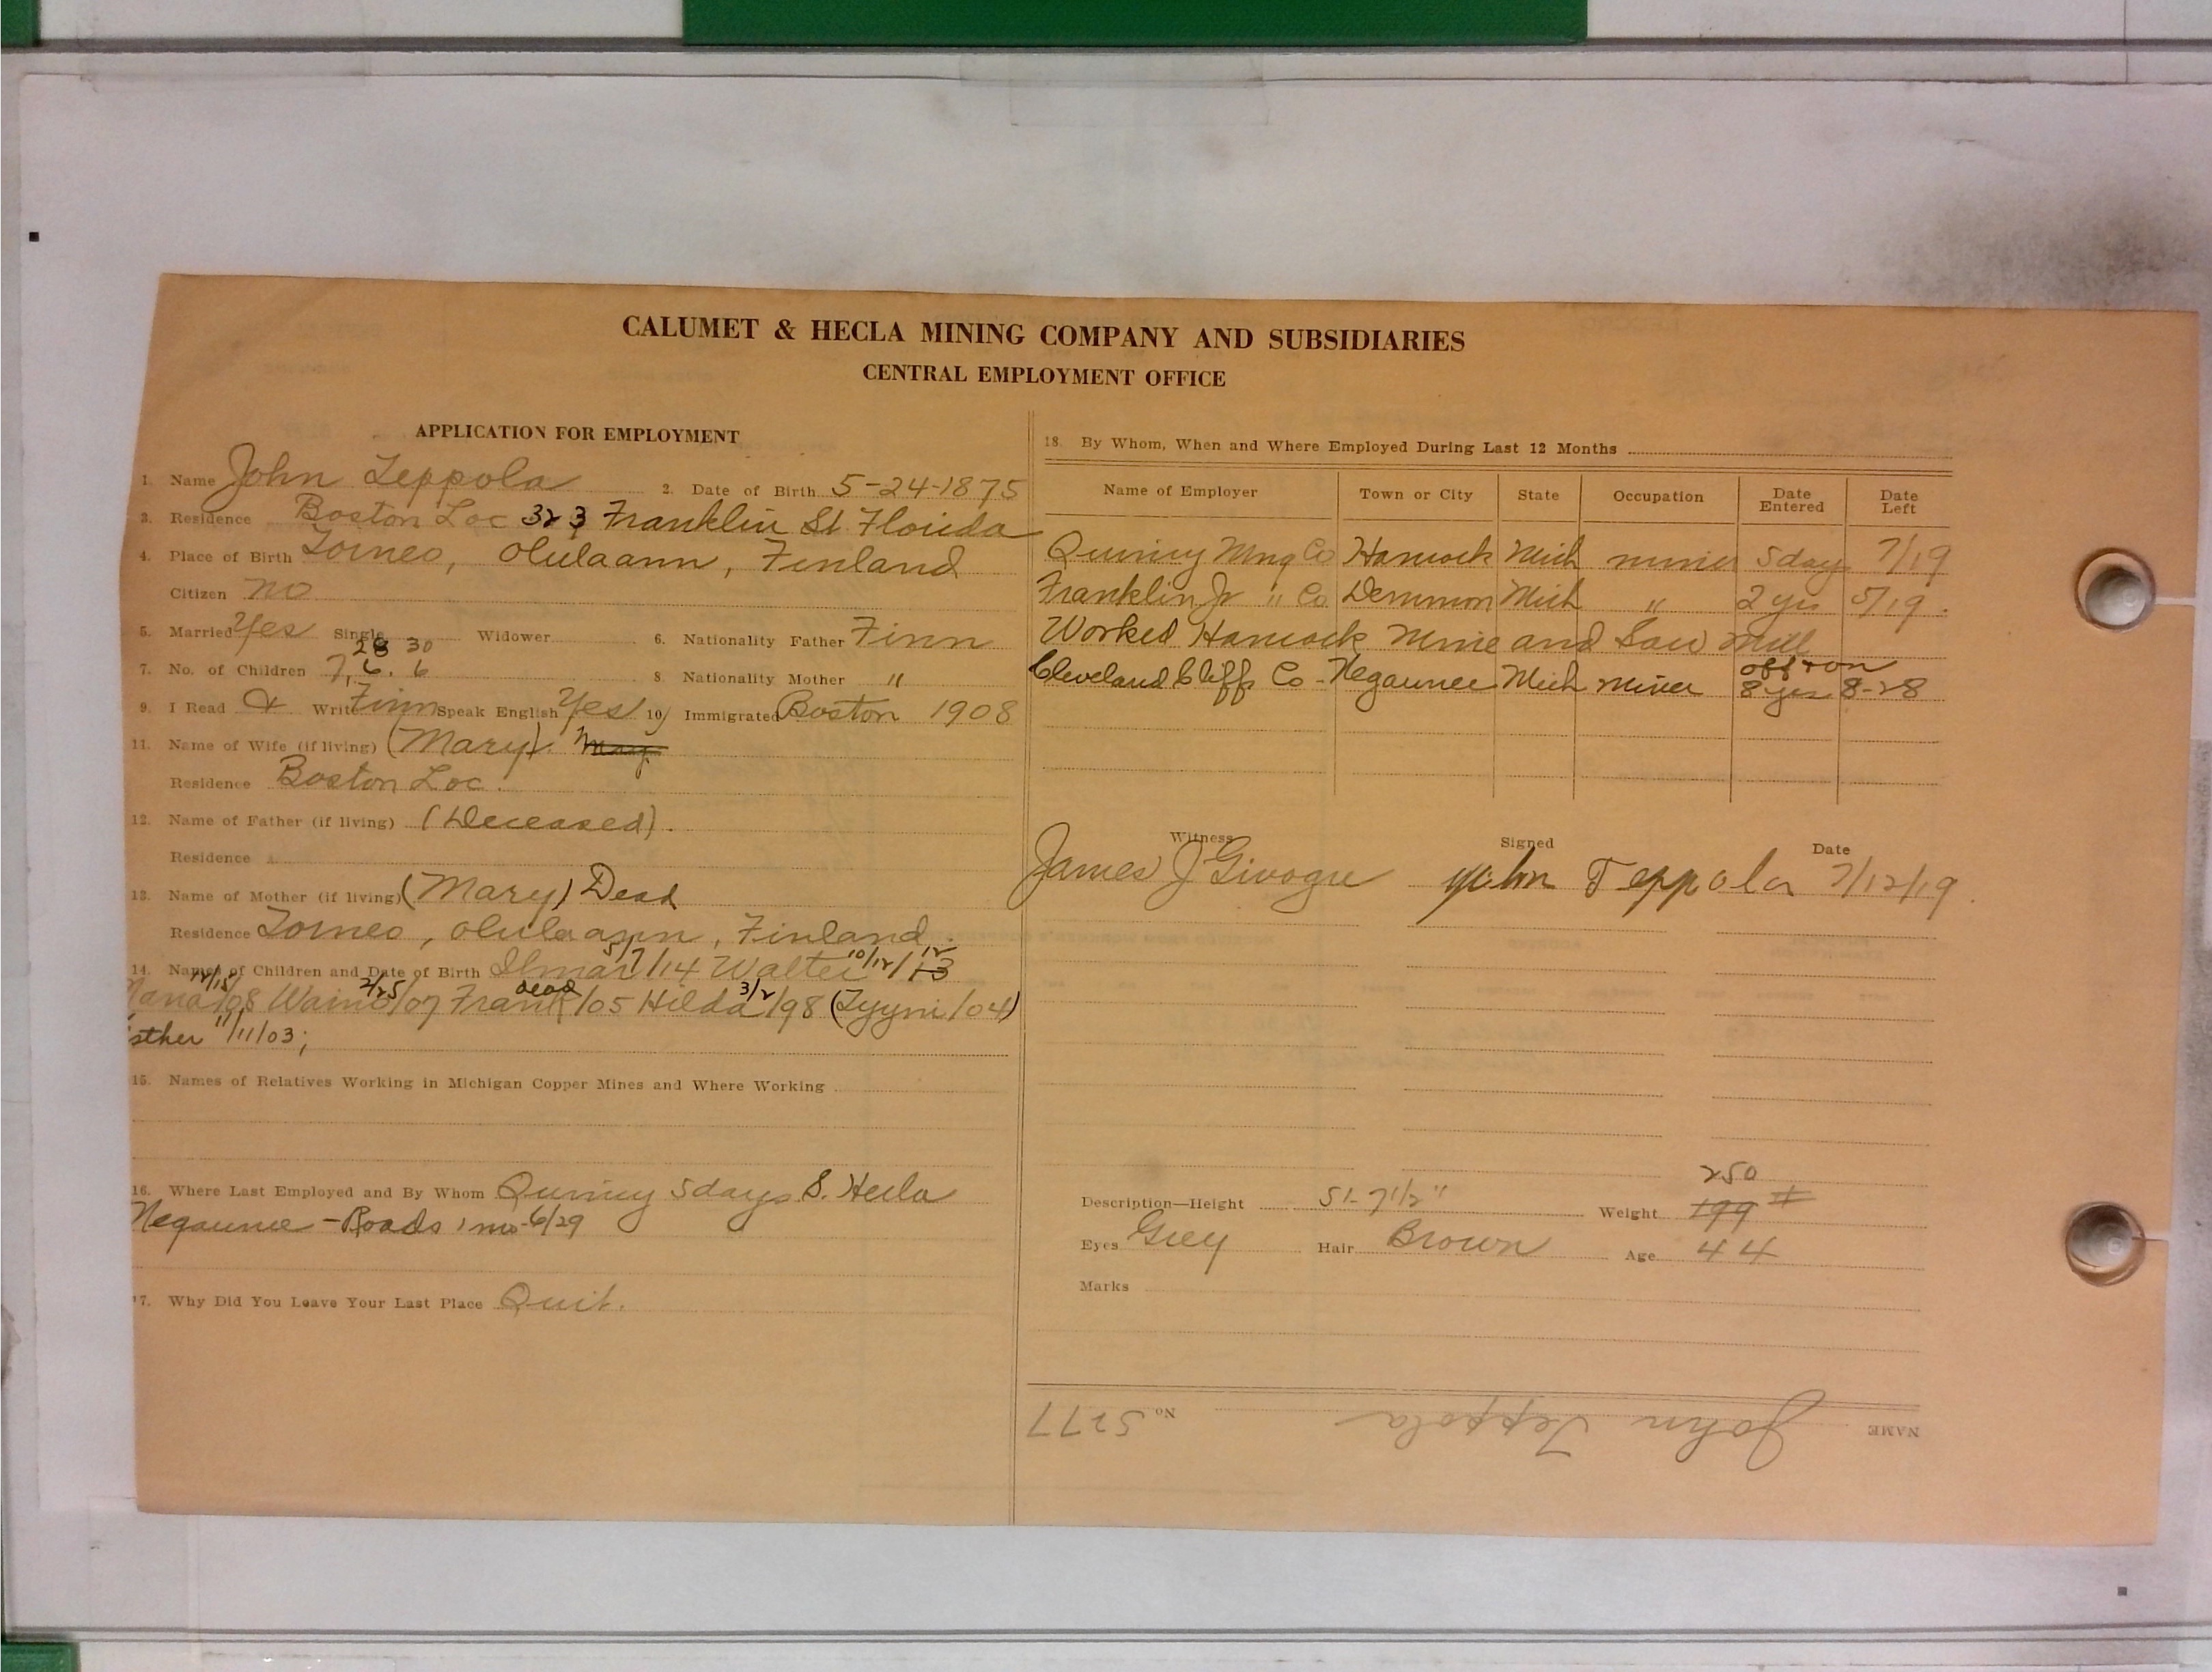 CALUMET & HECLA MINING COMPANY AND SUBSIDIARIES
CENTRAL EMPLOYMENT OFFICE
APPLICATION FOR EMPLOYMENT
1. Name John Teppola 2. Date of Birth 5-24-1875
3. Residence Boston Loc 323 Franklin St. Florida
4. Place of Birth Torneo, Olulaann, Finland
Citizen no
5. Married Yes Single Widower 6. Nationality Father Finn
28 30
7. No. of Children 7, 6. 6 8. Nationality Mother "
9. I Read & Write Finn Speak English Yes 10. Immigrated Boston 1908
11. Name of Wife (if living) (Mary). Mary
Residence Boston Loc.
12. Name of Father (if living) (Deceased).
Residence
13. Name of Mother (if living) (Mary) Dead
Residence Torneo, Olulaann, Finland.
14. Names of Children and Date of Birth Ilmar 5/7/14 Walter 10/12/13 12
12/15/08 Waino 2/25/07 Frank dead /05 Hilda 3/2/98 (Tyyni/04)
sther 11/11/03;
15. Names of Relatives Working in Michigan Copper Mines and Where Working
16. Where Last Employed and By Whom Quincy 5 days S. Hecla
Negaunee - Roads 1 mo - 6/29
17. Why Did You Leave Your Last Place Quit.
18. By Whom, When and Where Employed During Last 12 Months
Name of Employer Town or City State Occupation Date Entered Date Left
Quincy Mng Co Hancock Mich miner 5 days 7/19
Franklin Jr " Co Demmon Mich " 2 yrs 5/19.
Worked Hancock Mine and Saw Mill
off + on
Cleveland Cliffs Co - Negaunee Mich miner 8 yrs 8-28
Witness Signed Date
James J Givogre John Teppola 7/12/19
250
Description—Height 5'- 7 1/2" Weight 199 #
Eyes Grey Hair Brown Age 44
Marks
NAME John Teppola No 5277